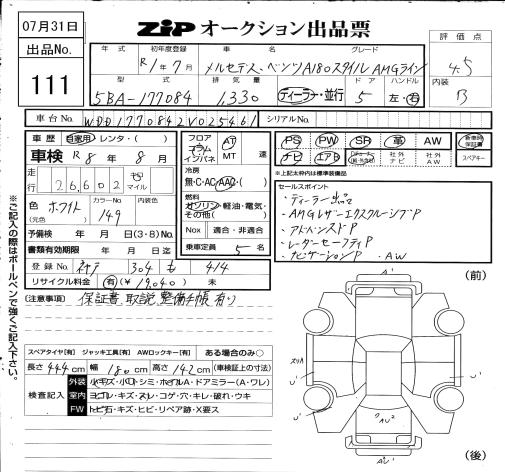 07月31日
ZIP オークション出品票
評価点
出品No.
111
年式 初年度登録 車名 グレード
R1年7月 メルセデス・ベンツA180スタイル AMGライン
4.5
型式 排気量 ドア ハンドル
内装
5BA-177084 1,330 ディーラー・並行 5 左・右
B
車台No. WDD1770842V025461 シリアルNo.
車歴 自家用 レンタ・( )
車検 R8年8月
走行 26,602 キロ マイル
色 (元色) ホワイト カラーNo. 149 内装色
予備検 年 月 日(3・8)No.
書類有効期限 年 月 日
登録No. 304 も 414
リサイクル料金 有(¥19,040) 未
フロア コラム インパネ AT MT 速
冷房 無・C・AC・AAC・( )
燃料 ガソリン・軽油・電気・その他( )
Nox 適合・非適合
乗車定員 5名
PS PW SR 革 AW 新車時保証書
ナビ エアB 社外ナビ 社外AW スペアキー
※上記太枠内は標準装備品
セールスポイント
・ディーラー
・AMGレザーエクスクルーシブP
・アドバンスドP
・レーダーセーフティP
・ナビゲーションP ・AW
(注意事項) 保証書、取説、整備手帳有り
※ご記入の際はボールペンで強くご記入下さい。
スペアタイヤ[有] ジャッキ工具[有] AWロックキー[有] ある場合のみ○
長さ 444cm 幅 180cm 高さ 142cm (車検証上の寸法)
検査記入
外装 小キズ・小凹・シミ・ホイルA・ドアミラー(A・ワレ)
室内 ヨゴレ・キズ・スレ・コゲ・穴・キレ・破れ・ウキ
FW トビ石・キズ・ヒビ・リペア跡・X要ス
(前)
(後)